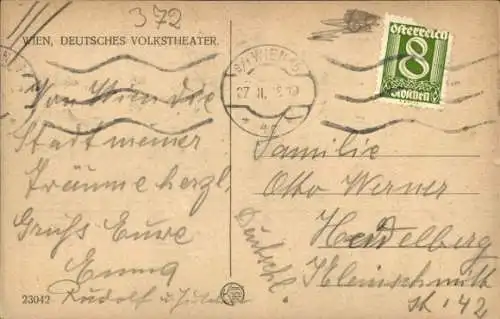 372
WIEN, DEUTSCHES VOLKSTHEATER.
Von Wien die
Stadt meiner
Träume herzl.
Gruß Eure
Emma
Rudolf u.
23042
WIEN
27 II
Österreich
8
Groschen
Familie
Otto Werner
Heidelberg
Kleinschmidt
str. 42
Deutschl.